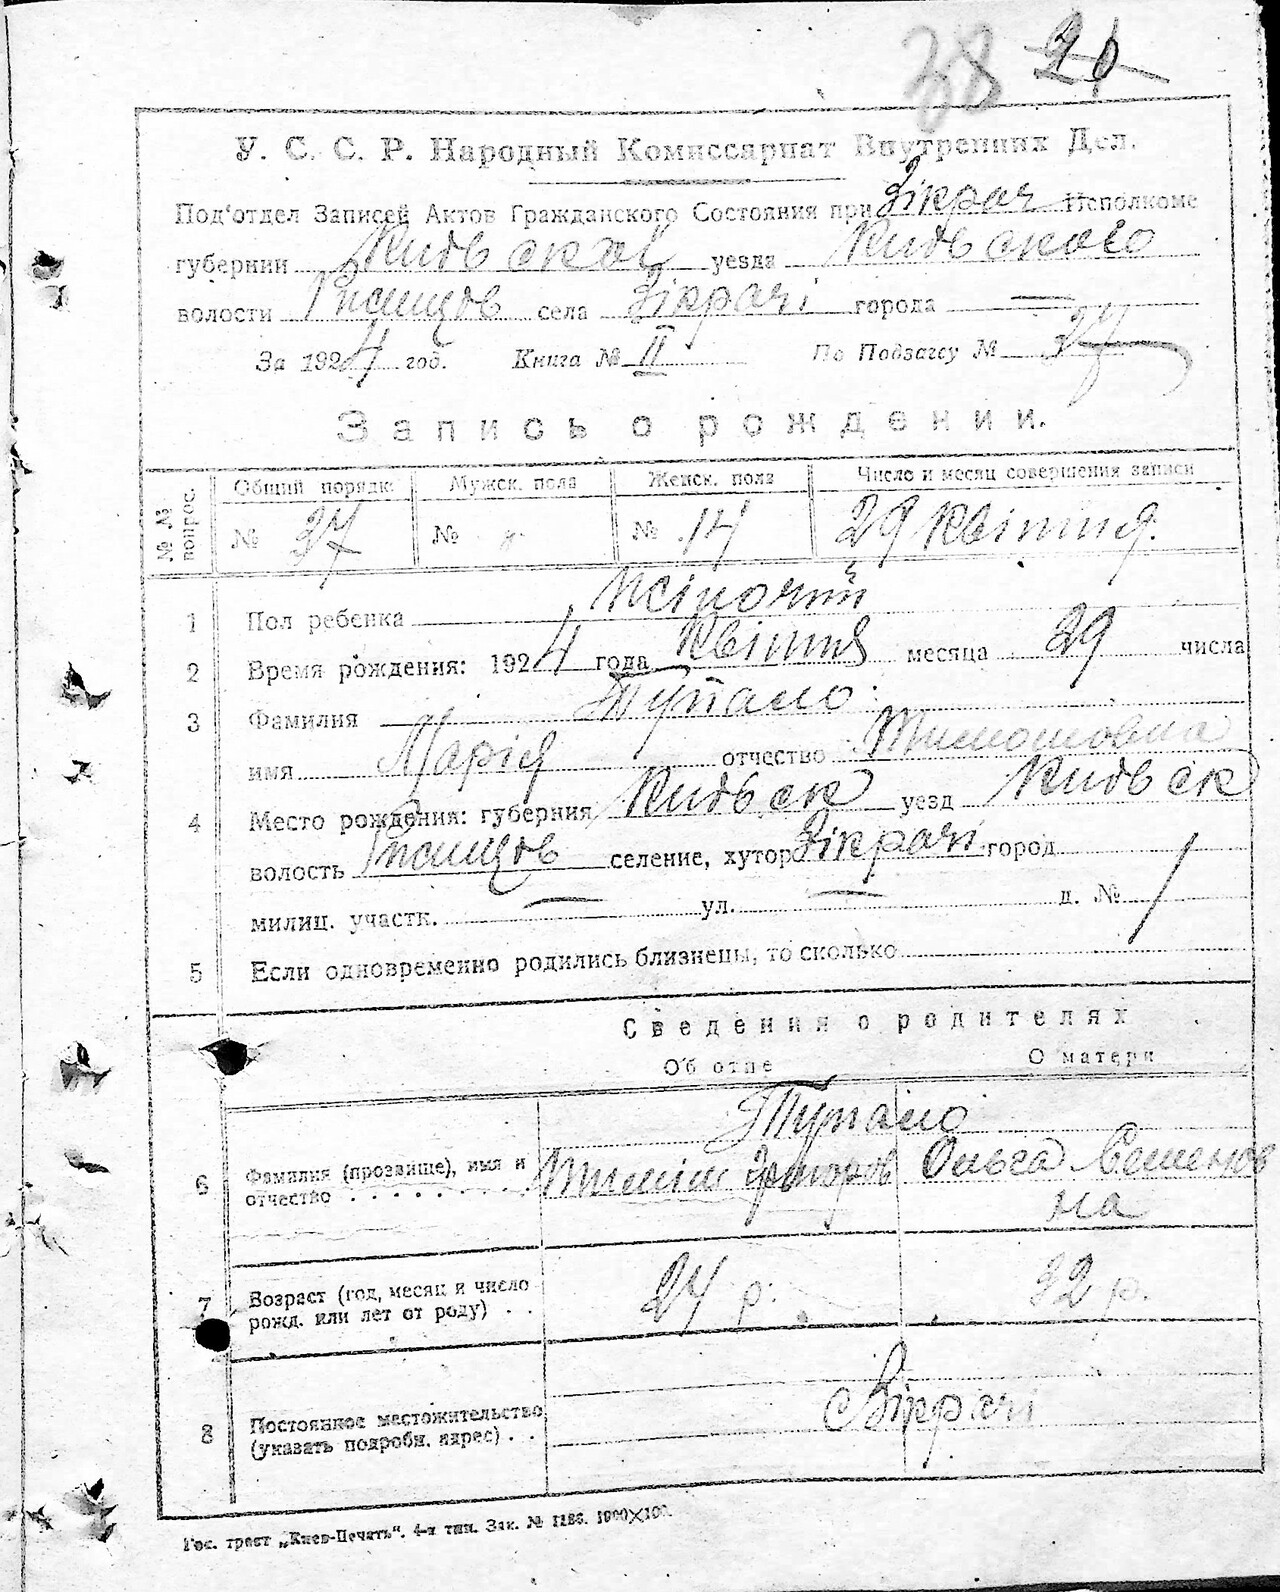 38 21
У. С. С. Р. Народный Комиссариат Внутренних Дел.
Под'отдел Записей Актов Гражданского Состояния при Зікрач Исполкоме
губернии Киівськоі уезда Киівського
волости Ржищів села Зікрачі города —
За 1924 год. Книга № II По Подзагсу № 37
Запись о рождении.
№ № вопрос. Общий порядк. Мужск. пола Женск. пола Число и месяц совершения записи
№ 37 № № 14 29 Квітня.
1 Пол ребенка жіночій
2 Время рождения: 1924 года Квітня месяца 29 числа
3 Фамилия Тупало
имя Марія отчество Тимошовна
4 Место рождения: губерния Киівськ уезд Киівськ
волость Ржищів селение, хутор Зікрачі город
милиц. участк. — ул. — д. № /
5 Если одновременно родились близнецы, то сколько
Сведения о родителях
Об отце О матери
Тупало
6 Фамилия (прозвище), имя и отчество . . . . . . . Тиміш Григоров Ольга Семенов
на
7 Возраст (год, месяц и число рожд. или лет от роду) . . 24 р. 22 р.
8 Постоянное местожительство (указать подробн. адрес) . . с Зікрачі
Гос. трест „Киев-Печать". 4-я тип. Зак. № 1186. 1000×100.